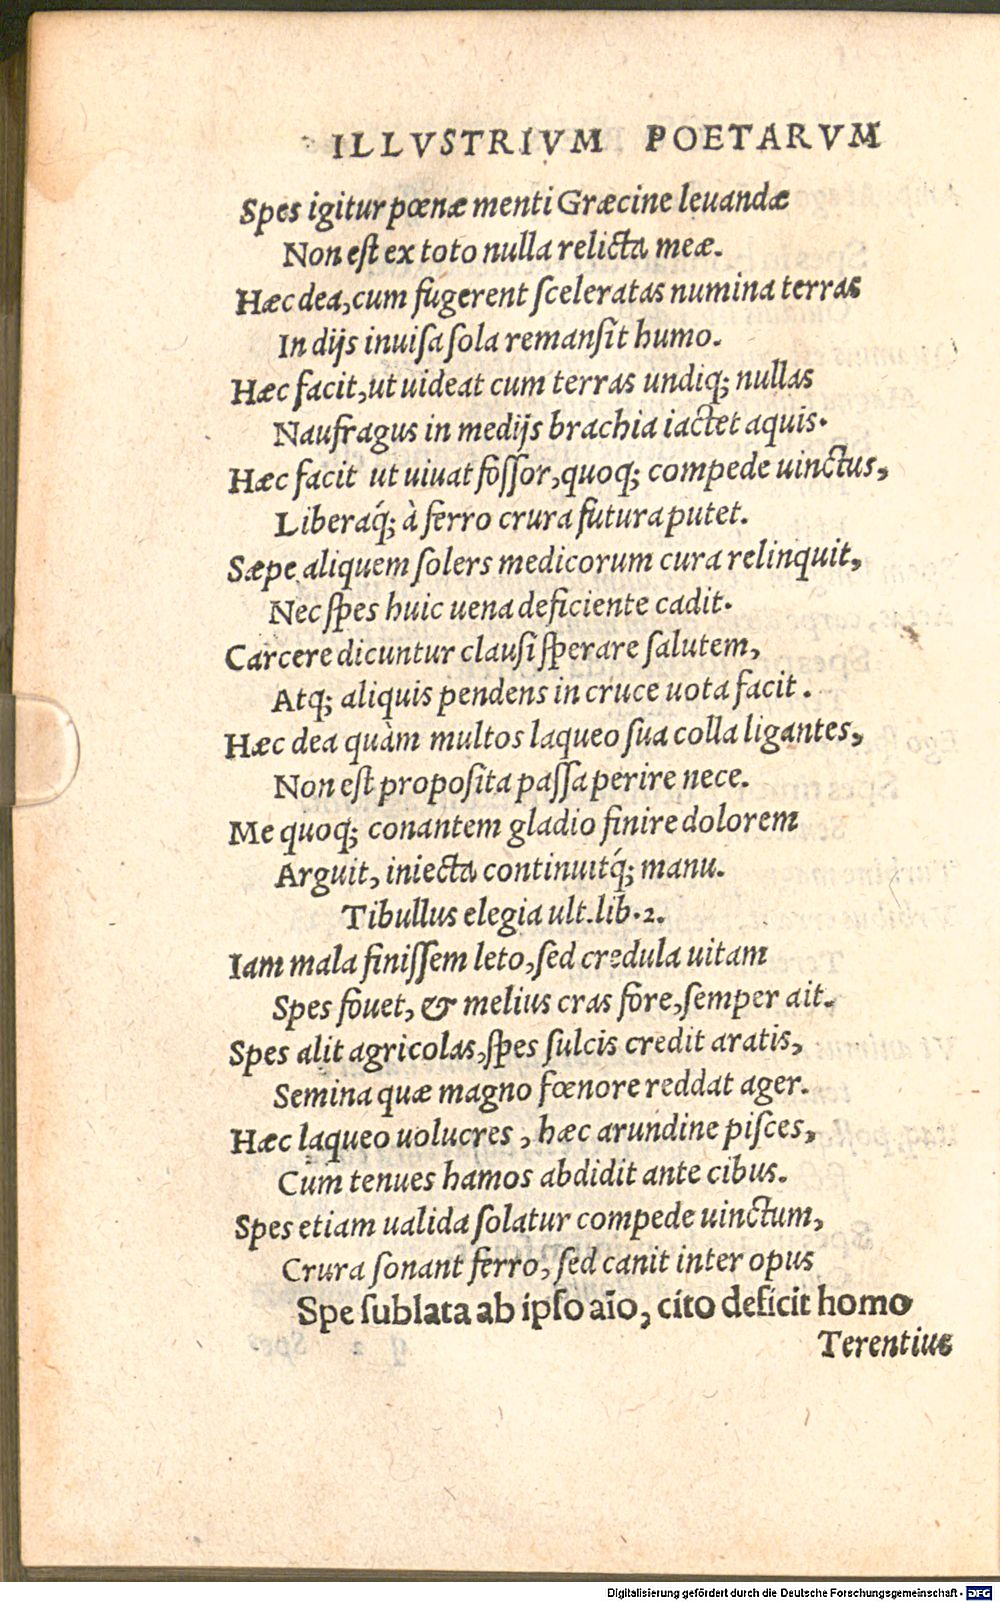 ILLVSTRIVM POETARVM
Spes igitur pœnæ menti Græcine leuandæ
Non eſt ex toto nulla relicta meæ.
Hæc dea, cum fugerent ſceleratas numina terras
In dijs inuiſa ſola remanſit humo.
Hæc facit, ut uideat cum terras undiq; nullas
Naufragus in medijs brachia iactet aquis.
Hæc facit ut uiuat foſſor, quoq; compede uinctus,
Liberaq́; à ferro crura futura putet.
Sæpe aliquem ſolers medicorum cura relinquit,
Nec ſpes huic uena deficiente cadit.
Carcere dicuntur clauſi ſperare ſalutem,
Atq; aliquis pendens in cruce uota facit.
Hæc dea quàm multos laqueo ſua colla ligantes,
Non eſt propoſita paſſa perire nece.
Me quoq; conantem gladio finire dolorem
Arguit, iniecta continuitq́; manu.
Tibullus elegia ult. lib. 2.
Iam mala finiſſem leto, ſed credula uitam
Spes fouet, & melius cras fore, ſemper ait.
Spes alit agricolas, ſpes ſulcis credit aratis,
Semina quæ magno fœnore reddat ager.
Hæc laqueo uolucres, hæc arundine piſces,
Cum tenues hamos abdidit ante cibus.
Spes etiam ualida ſolatur compede uinctum,
Crura ſonant ferro, ſed canit inter opus
Spe ſublata ab ipſo aīo, cito deficit homo
Terentius
Digitalisierung gefördert durch die Deutsche Forschungsgemeinschaft - DFG